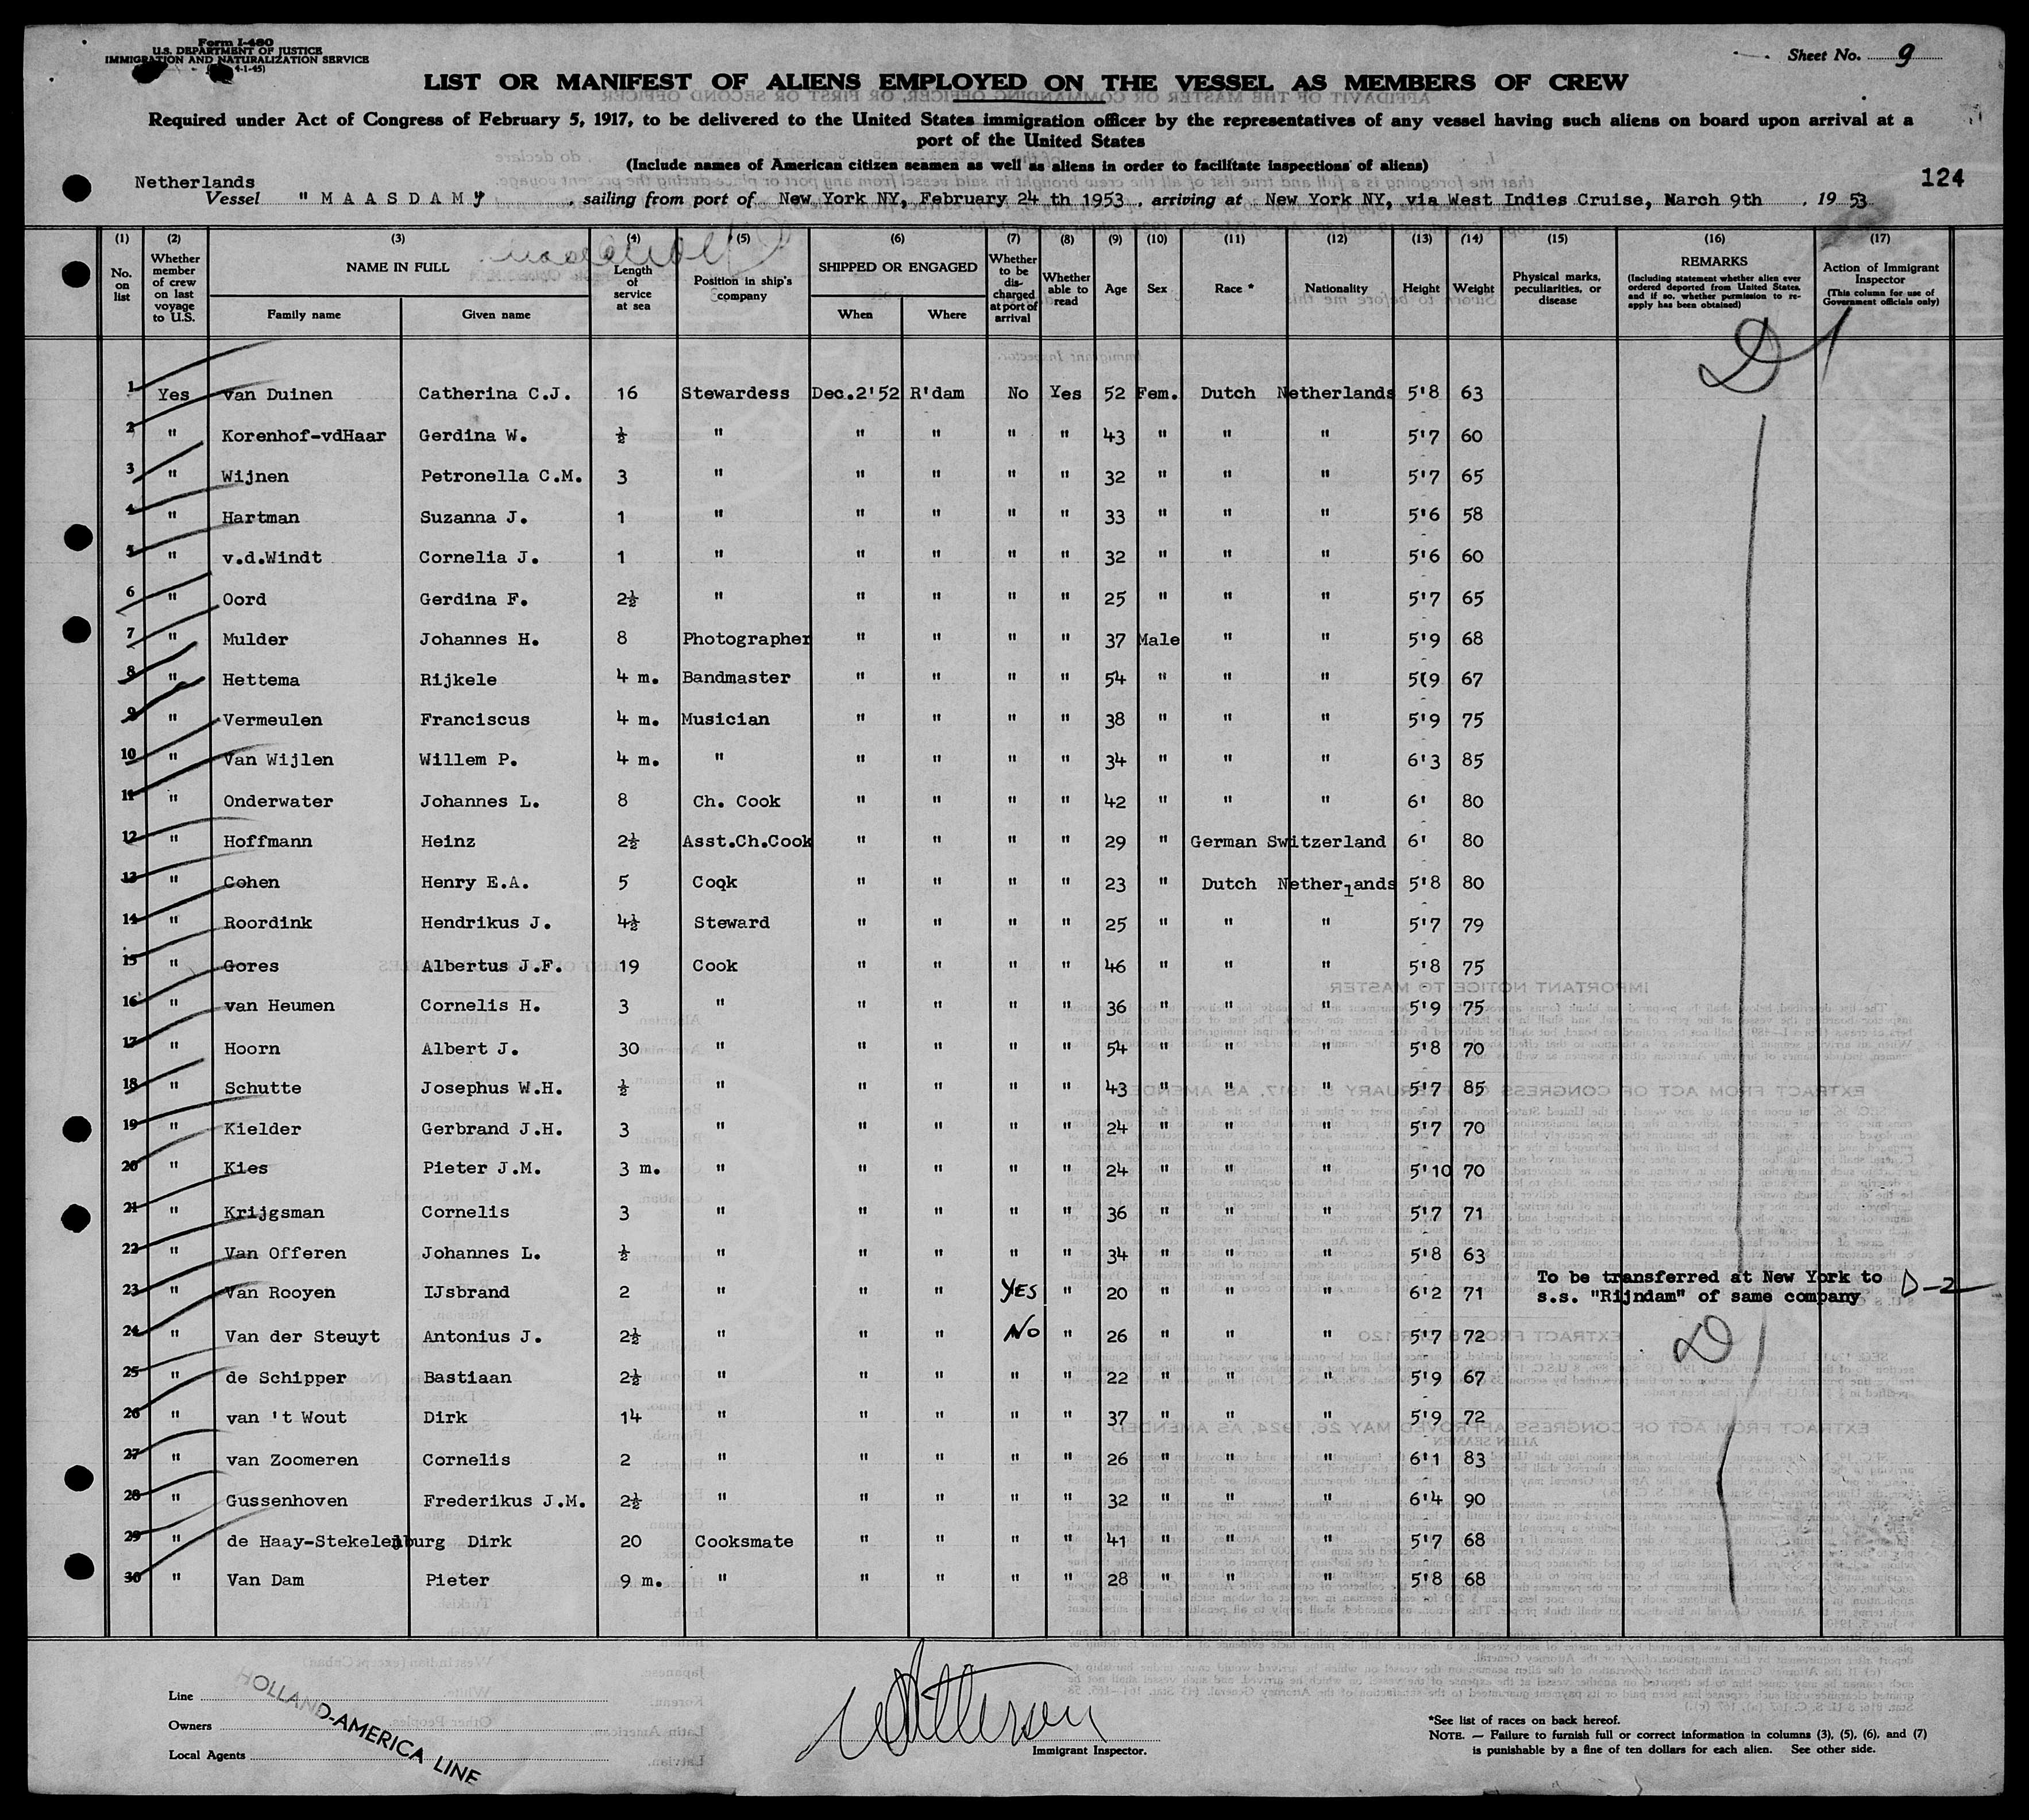 Form I-480
U.S. DEPARTMENT OF JUSTICE
IMMIGRATION AND NATURALIZATION SERVICE
4-1-45)
Sheet No. 9
LIST OR MANIFEST OF ALIENS EMPLOYED ON THE VESSEL AS MEMBERS OF CREW
Required under Act of Congress of February 5, 1917, to be delivered to the United States immigration officer by the representatives of any vessel having such aliens on board upon arrival at a
port of the United States
(Include names of American citizen seamen as well as aliens in order to facilitate inspections of aliens)
124
Netherlands
Vessel "MAASDAM", sailing from port of New York NY, February 24 th 1953, arriving at New York NY, via West Indies Cruise, March 9th, 1953
(1) (2) (3) (4) (5) (6) (7) (8) (9) (10) (11) (12) (13) (14) (15) (16) (17)
No. on list
Whether member of crew on last voyage to U.S.
NAME IN FULL
Family name Given name
Length of service at sea
Position in ship's company
SHIPPED OR ENGAGED
When Where
Whether to be discharged at port of arrival
Whether able to read
Age
Sex
Race *
Nationality
Height
Weight
Physical marks, peculiarities, or disease
REMARKS
(Including statement whether alien ever ordered deported from United States, and if so, whether permission to reapply has been obtained)
Action of Immigrant Inspector
(This column for use of Government officials only)
D
1 Yes van Duinen Catherina C.J. 16 Stewardess Dec.2'52 R'dam No Yes 52 Fem. Dutch Netherlands 5'8 63
2 " Korenhof-vdHaar Gerdina W. ½ " " " " " 43 " " " 5'7 60
3 " Wijnen Petronella C.M. 3 " " " " " 32 " " " 5'7 65
4 " Hartman Suzanna J. 1 " " " " " 33 " " " 5'6 58
5 " v.d.Windt Cornelia J. 1 " " " " " 32 " " " 5'6 60
6 " Oord Gerdina F. 2½ " " " " " 25 " " " 5'7 65
7 " Mulder Johannes H. 8 Photographer " " " " 37 Male " " 5'9 68
8 " Hettema Rijkele 4 m. Bandmaster " " " " 54 " " " 5(9 67
9 " Vermeulen Franciscus 4 m. Musician " " " " 38 " " " 5'9 75
10 " Van Wijlen Willem P. 4 m. " " " " " 34 " " " 6'3 85
11 " Onderwater Johannes L. 8 Ch. Cook " " " " 42 " " " 6' 80
12 " Hoffmann Heinz 2½ Asst.Ch.Cook " " " " 29 " German Switzerland 6' 80
13 " Cohen Henry E.A. 5 Cook " " " " 23 " Dutch Netherlands 5'8 80
14 " Roordink Hendrikus J. 4½ Steward " " " " 25 " " " 5'7 79
15 " Gores Albertus J.F. 19 Cook " " " " 46 " " " 5'8 75
16 " van Heumen Cornelis H. 3 " " " " " 36 " " " 5'9 75
17 " Hoorn Albert J. 30 " " " " " 54 " " " 5'8 70
18 " Schutte Josephus W.H. ½ " " " " " 43 " " " 5'7 85
19 " Kielder Gerbrand J.H. 3 " " " " " 24 " " " 5'7 70
20 " Kies Pieter J.M. 3 m. " " " " " 24 " " " 5'10 70
21 " Krijgsman Cornelis 3 " " " " " 36 " " " 5'7 71
22 " Van Offeren Johannes L. ½ " " " " " 34 " " " 5'8 63
23 " Van Rooyen IJsbrand 2 " " " YES " 20 " " " 6'2 71 To be transferred at New York to s.s. "Rijndam" of same company D-2
24 " Van der Steuyt Antonius J. 2½ " " " No " 26 " " " 5'7 72 D
25 " de Schipper Bastiaan 2½ " " " " " 22 " " " 5'9 67
26 " van 't Wout Dirk 14 " " " " " 37 " " " 5'9 72
27 " van Zoomeren Cornelis 2 " " " " " 26 " " " 6'1 83
28 " Gussenhoven Frederikus J.M. 2½ " " " " " 32 " " " 6'4 90
29 " de Haay-Stekelenburg Dirk 20 Cooksmate " " " " 41 " " " 5'7 68
30 " Van Dam Pieter 9 m. " " " " " 28 " " " 5'8 68
Line
Owners
Local Agents
HOLLAND-AMERICA LINE
Immigrant Inspector.
*See list of races on back hereof.
NOTE. — Failure to furnish full or correct information in columns (3), (5), (6), and (7)
is punishable by a fine of ten dollars for each alien. See other side.